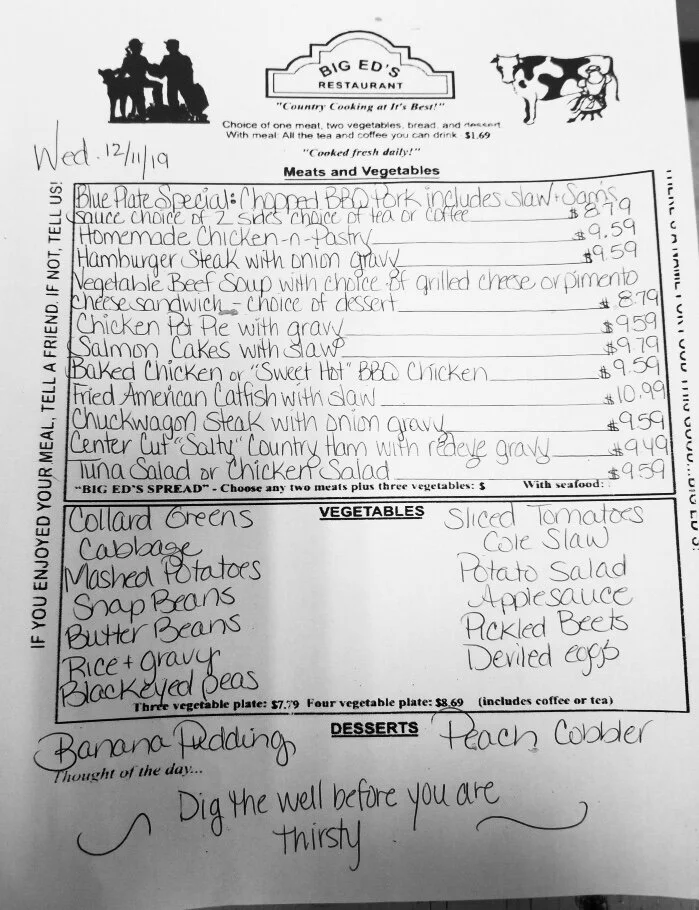 BIG ED'S
RESTAURANT
"Country Cooking at It's Best!"
Choice of one meat, two vegetables, bread, and dessert
With meal: All the tea and coffee you can drink $1.69
"Cooked fresh daily!"
Wed. 12/11/19
Meats and Vegetables
Blue Plate Special: Chopped BBQ Pork includes slaw + Sam's
sauce choice of 2 sides choice of tea or coffee $8.79
Homemade Chicken-n-Pastry $9.59
Hamburger Steak with onion gravy $9.59
Vegetable Beef Soup with choice of grilled cheese or pimento
cheese sandwich - choice of dessert $8.79
Chicken Pot Pie with gravy $9.59
Salmon Cakes with slaw $9.79
Baked Chicken or "Sweet Hot" BBQ Chicken $9.59
Fried American Catfish with slaw $10.99
Chuckwagon Steak with onion gravy $9.59
Center Cut "Salty" Country Ham with redeye gravy $9.49
Tuna Salad or Chicken Salad $9.59
"BIG ED'S SPREAD" - Choose any two meats plus three vegetables: $ With seafood:
VEGETABLES
Collard Greens
Cabbage
Mashed Potatoes
Snap Beans
Butter Beans
Rice + gravy
Blackeyed peas
Sliced Tomatoes
Cole Slaw
Potato Salad
Applesauce
Pickled Beets
Deviled eggs
Three vegetable plate: $7.79 Four vegetable plate: $8.69 (includes coffee or tea)
DESSERTS
Banana Pudding
Peach Cobbler
Thought of the day...
Dig the well before you are
thirsty
IF YOU ENJOYED YOUR MEAL, TELL A FRIEND. IF NOT, TELL US!